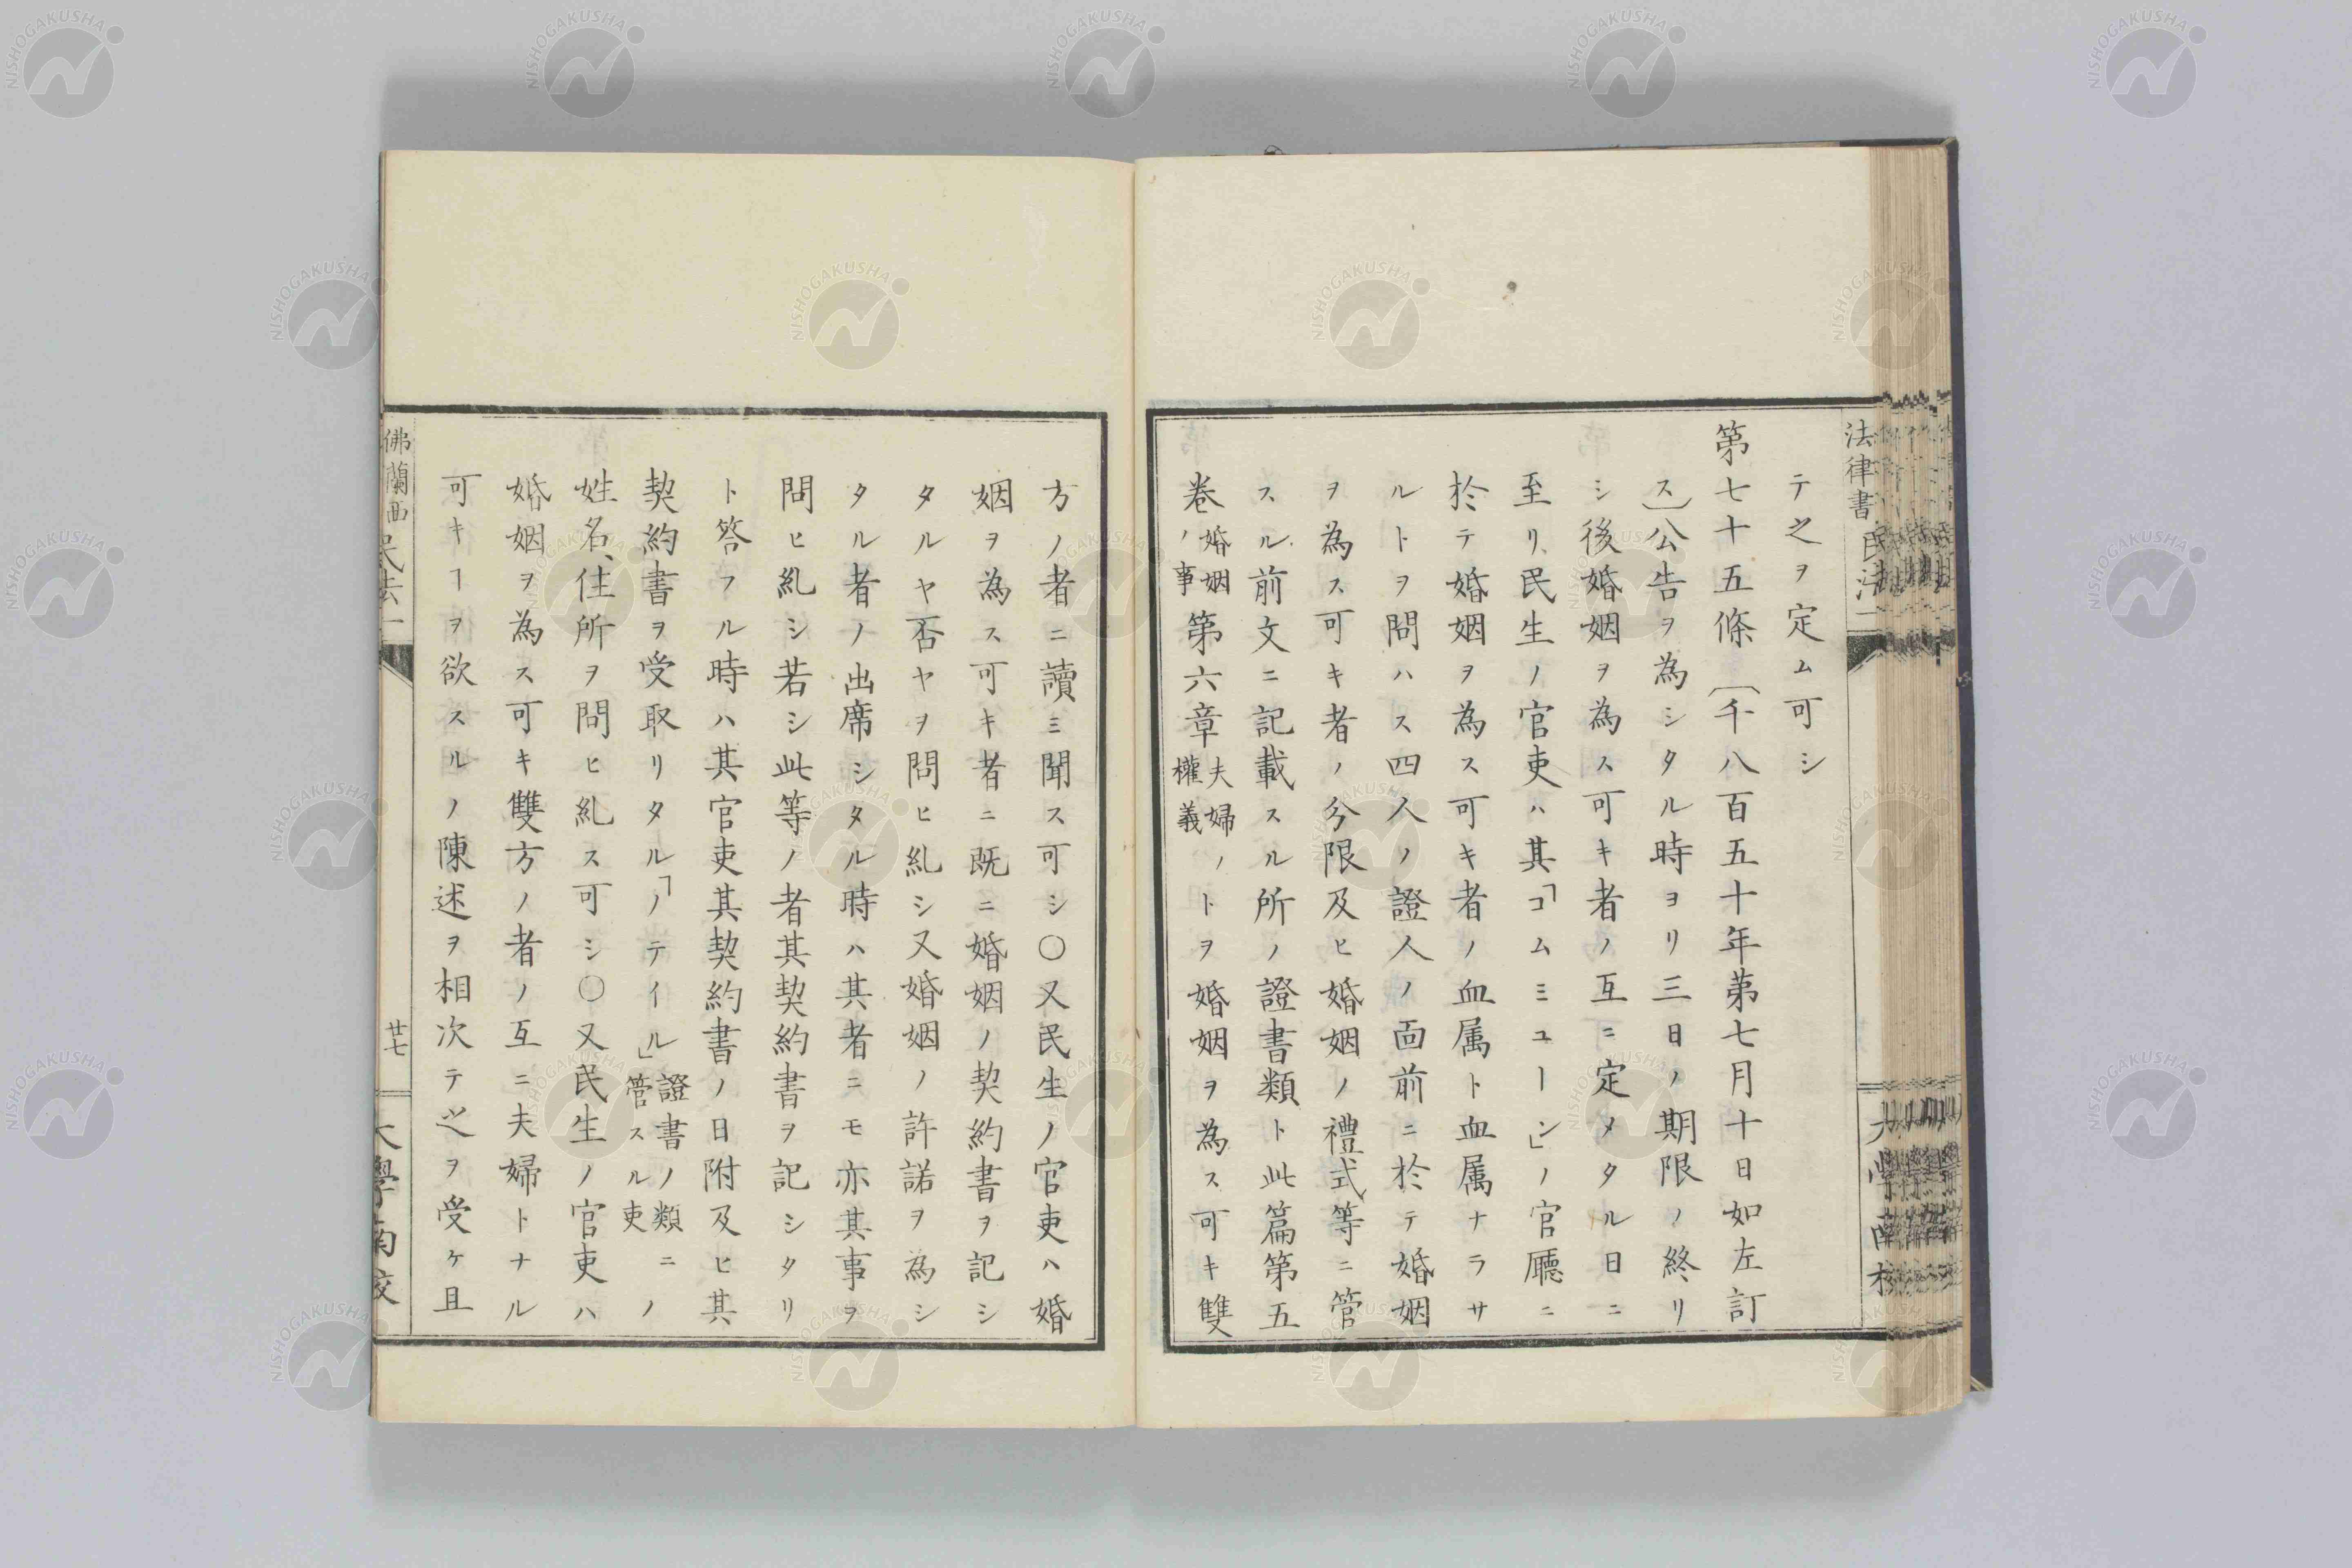 法律書 民法一
テ之ヲ定ム可シ
第七十五條〔千八百五十年第七月十日如左訂
ス〕公告ヲ為シタル時ヨリ三日ノ期限ノ終リ
シ後婚姻ヲ為ス可キ者ノ互ニ定メタル日ニ
至リ、民生ノ官吏ハ其「コムミユーン」ノ官廳ニ
於テ婚姻ヲ為ス可キ者ノ血属ト血属ナラサ
ルトヲ問ハス四人ノ證人ノ面前ニ於テ婚姻
ヲ為ス可キ者ノ分限及ヒ婚姻ノ禮式等ニ管
スル前文ニ記載スル所ノ證書類ト此篇第五
巻婚姻ノ事第六章夫婦權義ノトヲ婚姻ヲ為ス可キ雙
方ノ者ニ讀ミ聞ス可シ〇又民生ノ官吏ハ婚
姻ヲ為ス可キ者ニ既ニ婚姻ノ契約書ヲ記シ
タルヤ否ヤヲ問ヒ糺シ又婚姻ノ許諾ヲ為シ
タル者ノ出席シタル時ハ其者ニモ亦其事ヲ
問ヒ糺シ若シ此等ノ者其契約書ヲ記シタリ
ト答フル時ハ其官吏其契約書ノ日附及ヒ其
契約書ヲ受取リタル「ノテイル」證書ノ類ニ管スル吏ノ
姓名、住所ヲ問ヒ糺ス可シ〇又民生ノ官吏ハ
婚姻ヲ為ス可キ雙方ノ者ノ互ニ夫婦トナル
可キヿヲ欲スルノ陳述ヲ相次テ之ヲ受ケ且
佛蘭西民法一
廿七
大學南校
NISHOGAKUSHA